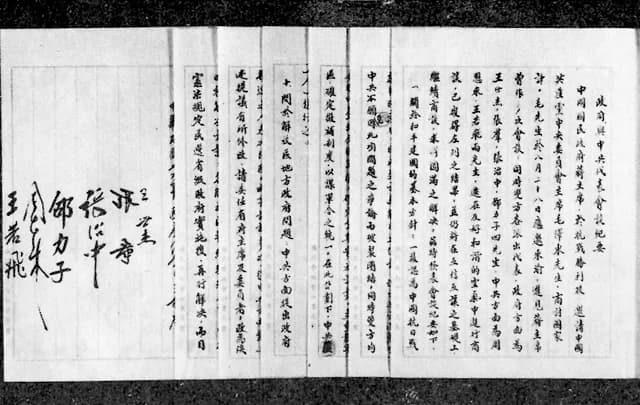 政府與中共代表會談紀要
中國國民政府蔣主席於抗戰勝利後，邀請中國
共產黨中央委員會主席毛澤東先生，商討國家大
計，毛先生於八月二十八日應邀來渝，進見蔣主席
曾作多次會談，同時雙方各派出代表，政府方面為
王世杰，張羣，張治中，邵力子四先生，中共方面為周
恩來，王若飛兩先生，迭在友好和諧的空氣中進行商
談，已獲得左列之結果，並仍將在互信互讓之基礎上
繼續商談，求得圓滿之解決，茲特發表會談紀要如下：
一、關於和平建國的基本方針，一致認為中國抗日戰
中共不願因此項問題之爭論而破裂團結，同時雙方均
區，確定徵補制度，以謀軍令之統一，在此計劃下，中共
十、關於解放區地方政府問題，中共方面提出政府
述提議有所修改，請委任省府主席及委員者，改為陝
憲法規定民選省級政府實施後，再行解決，而目
王世杰
張羣
張治中
邵力子
周恩來
王若飛